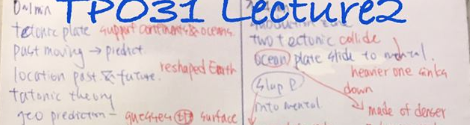 TPO31 Lecture2
tetonic plate support continents & oceans.
past moving → predict.
location past & future. reshaped Earth
tatonic theory
geo prediction - guesses surface
two tectonic collide
ocean plate slide to mental.
heavier one sinks down
slap e
into mental
made of denser